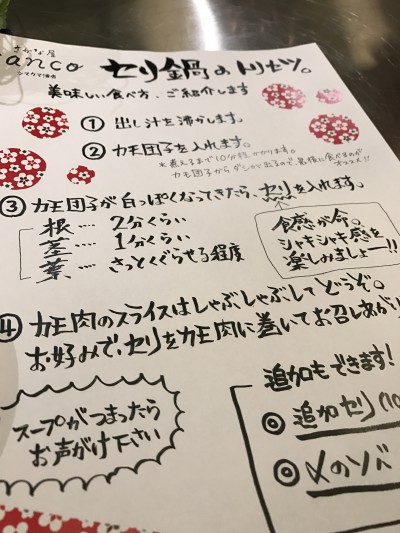 さかな屋
anco
シマウマ酒店
セリ鍋のトリセツ。
美味しい食べ方、ご紹介します
① 出し汁を沸かします。
② カモ団子を入れます。
*煮えるまで10分程かかります。
カモ団子からダシが出るので、最後に食べるのが
オススメ!!
③ カモ団子が白っぽくなってきたら、セリを入れます。
根… 2分くらい
茎… 1分くらい
葉… さっとくぐらせる程度
食感が命。
シャキシャキ感を
楽しみましょー!!
④ カモ肉のスライスはしゃぶしゃぶしてどうぞ。
お好みで、セリをカモ肉に巻いてお召しあがり
スープがつまったら
お声がけ下さい
追加もできます!
◎ 追加セリ(10
◎ 〆のソバ